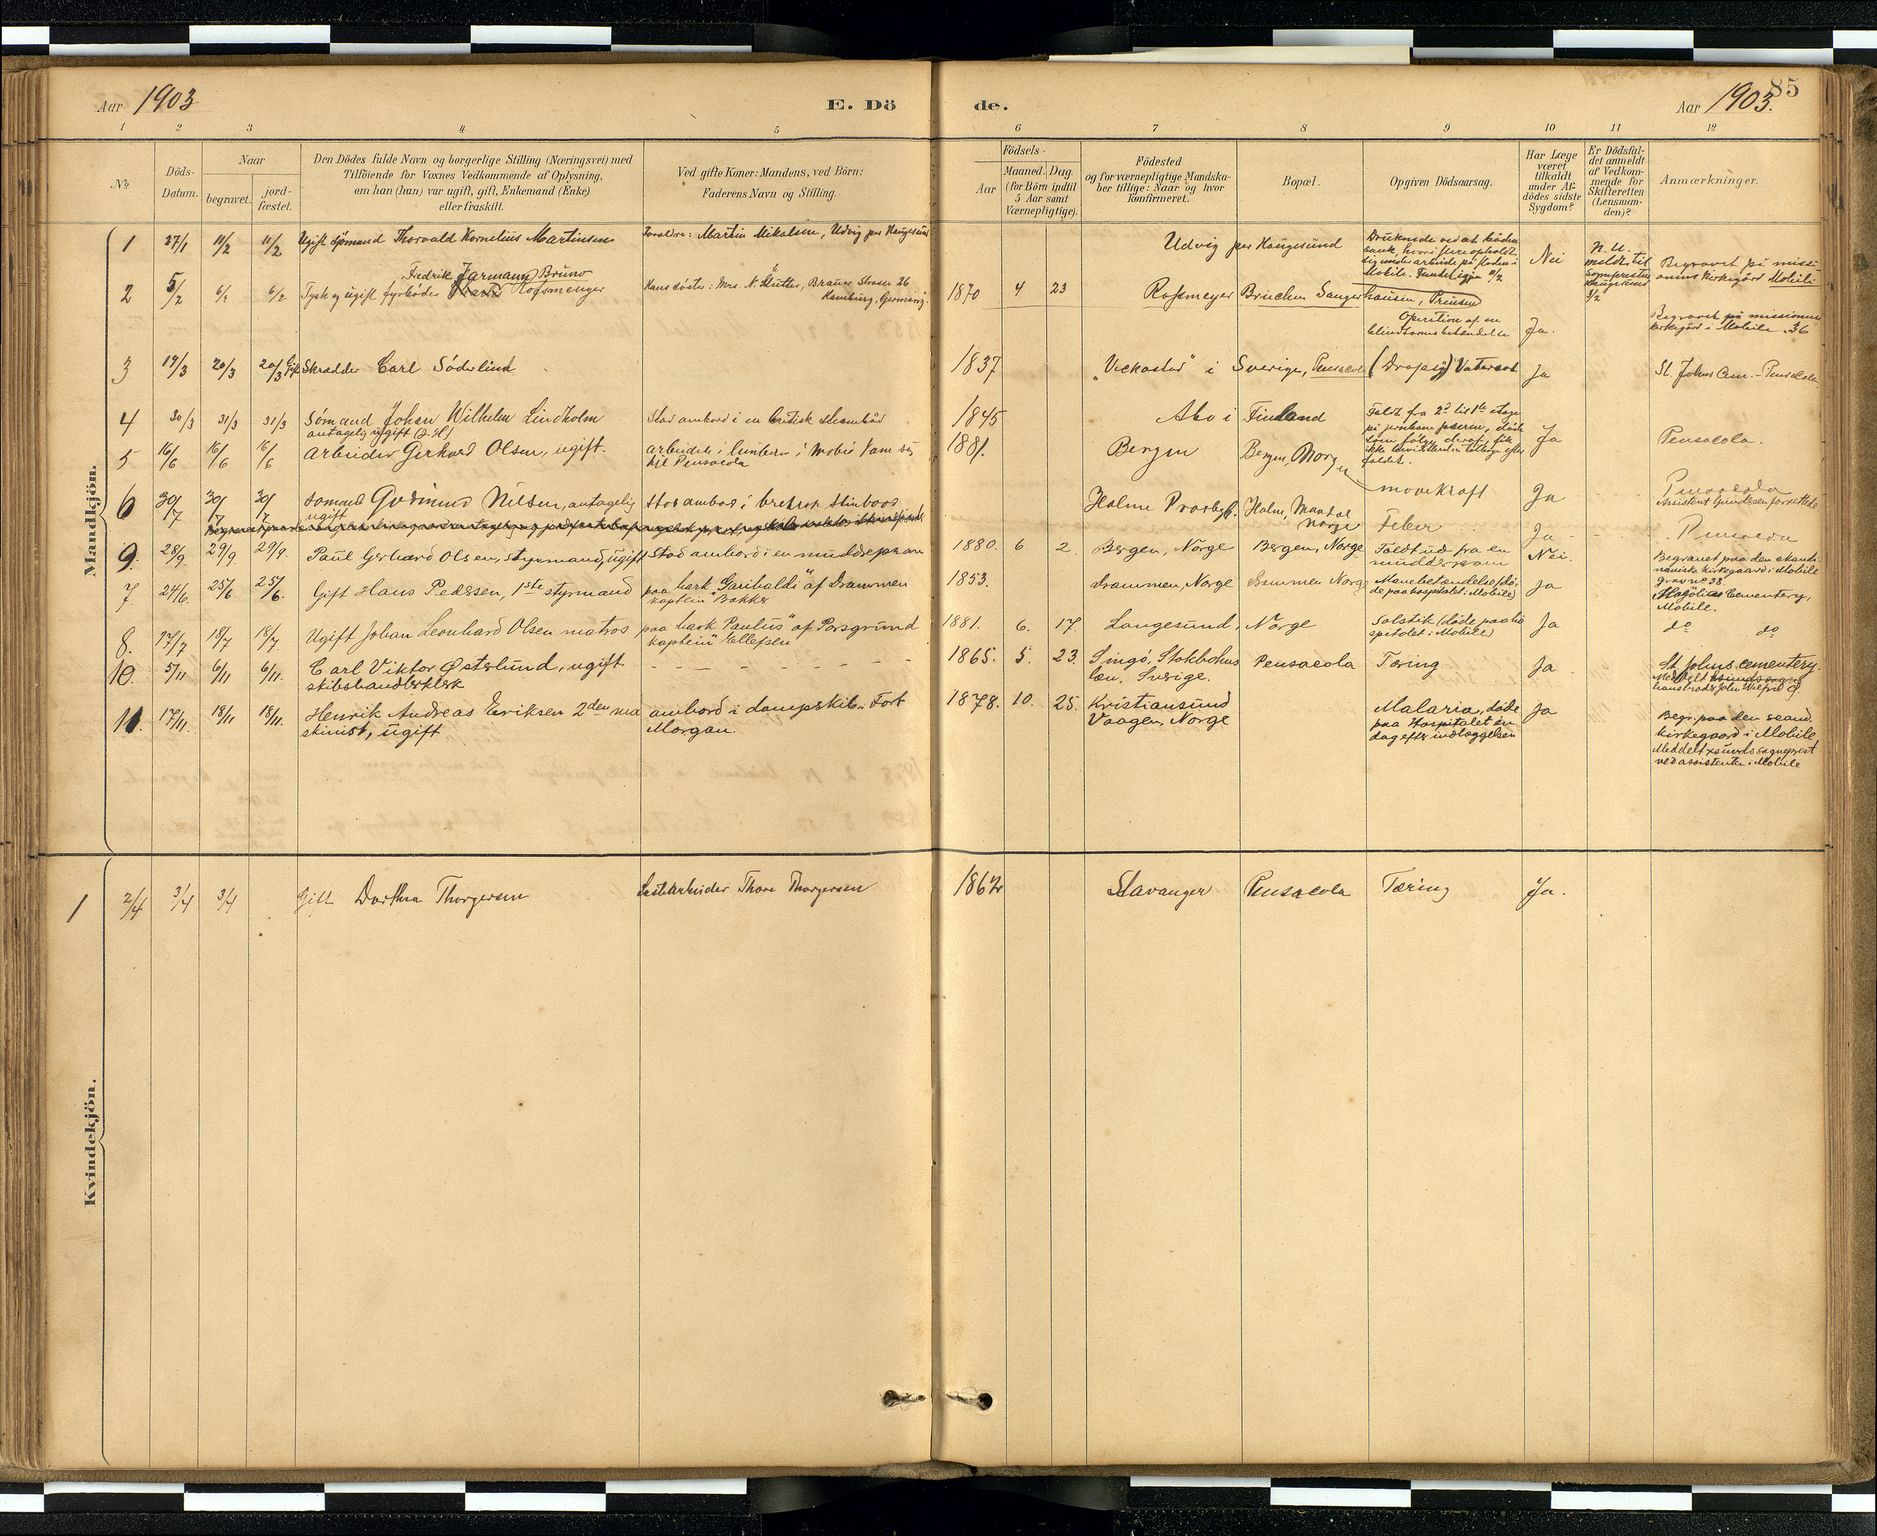 Aar 1903
E. Dö
de.
Aar 1903.
85
1 2 3 4 5 6 7 8 9 10 11 12
No
Döds-
Datum.
Naar
begravet.
jord-
fæstet.
Den Dödes fulde Navn og borgerlige Stilling (Næringsvei) med
Tilföiende for Voxnes Vedkommende af Oplysning,
om han (hun) var ugift, gift, Enkemand (Enke)
eller fraskilt.
Ved gifte Koner: Mandens, ved Börn:
Faderens Navn og Stilling.
Födsels-
Aar
Maaned.
Dag.
(for Börn indtil
5 Aar samt
Værnepligtige).
Födested
og for værnepligtige Mandska-
ber tillige: Naar og hvor
konfirmeret.
Bopæl.
Opgiven Dödsaarsag.
Har Læge
været
tilkaldt
under Af-
dödes sidste
Sygdom?
Er Dödsfal-
det anmeldt
af Vedkom-
mende for
Skifteretten
(Lensman-
den)?
Anmærkninger.
Mandkjön.
1 27/1 11/2 11/2 Ugift sjömand Thorvald Kornelius Martinsen
Foreldre: Martin Mikalsen, Udvig per Haugesund
Udvig per Haugesund
Druknede ved at båden
sank, hvori
Mobile. 11/2
Nei
meldt til
Haugesund
3/2
Begravet på missi-
onens kirkegård Mobile
2 5/2 6/2 6/2
Fedrik Jarmann Bruno
Tysk og ugift fyrböder Rossmenger
Hans söster: Mrs. N. Slutter, Brauer Strasse 26
Hamburg, Germany.
1870 4 23 Rossmeyer Bruchen Sanger hausen, Preussen
Operation af en
blindtarmsbetændelse
Ja.
Begravet på missionens
kirkegård i Mobile 36
3 19/3 20/3 20/3 Gift Skrædder Carl Söderlind
1837 "Veckostad" i Sverige, Pensacola (Dropsy) Vatersot Ja
St. Johns Cem. - Pensacola
4 30/3 31/3 31/3 Sömand Johan Wilhelm Lindholm
antagelig ugift
Stod ombord i en britisk
1845 Abo i Finland
Faldt fra 2d til 1te etage
Ja
Pensacola.
5 16/6 16/6 16/6 Arbeider Gerhard Olsen, ugift.
arbeidet i
til Pensacola
1881. Bergen Bergen, Norge
faldet.
moorkraft Ja
Pensacola
Assistent Gundersen forrettede
6 30/7 30/7 30/7 Sömand Gudmund Nilsen, antagelig
ugift
Stod ombord i britisk
Holme Holm, Mandal
Norge
Feber Ja
Pensacola
9. 28/9 29/9 29/9. Paul Gerhard Olsen, styrmand, ugift
Stod ombord i en muddrepram
1880. 6 2. Bergen, Norge Bergen, Norge
Faldt ud fra en
mudderpram
Nei
Begravet paa den skandi
naviske kirkegaard i Mobile
grav no 38.
7. 24/6. 25/6 25/6. Gift Hans Pedersen, 1ste styrmand
paa bark "Garibaldi" af Drammen
kaptein Bakker
1853. Drammen, Norge Drammen Norge
Mavebetændelse (dø-
de paa hospitalet i Mobile)
Ja
Magnolia Cementery,
Mobile.
8. 17/7 18/7 18/7. Ugift Johan Leonhard Olsen matros
paa bark "Paulus" af Porsgrund
kaptein Ellefsen
1881. 6. 17. Langesund, Norge
Solstik (døde paa ho
spitalet i Mobile)
Ja
do do
10. 5/11 6/11 6/11. Carl Viktor Østerlund, ugift
skibshandlerklerk
1865. 5. 23. Singö, Stokholms
län, Sverige.
Pensacola Tæring Ja
St. Johns cementery.
Meddelt
hans broder John Wilfrid Ø.
11. 17/11. 18/11 18/11. Henrik Andreas Eriksen 2den ma
skinist, ugift
ombord i dampskib. Fort
Morgan.
1878. 10. 25. Kristiansund
Vaagen, Norge
Malaria, døde
paa Hospitalet en
dag efter indlæggelsen
Ja
Begr. paa den scand.
kirkegaard i Mobile
Meddelt sogneprest
ved assistenten i Mobile
Kvindekjön.
1 2/4 3/4 3/4 Gift Dorthea Thorgersen
Lastearbeider Thore Thorgersen
1862 Stavanger Pensacola Tæring Ja.